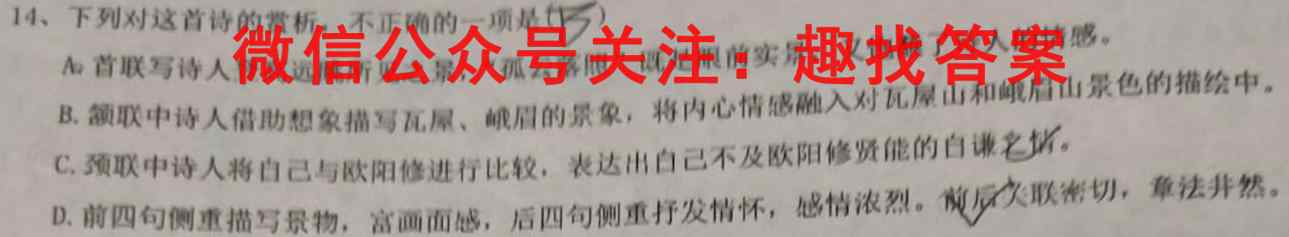 14、下列对这首诗的赏析,不正确的一项是(B)
微信公众号关注：趣找答案
A. 首联写诗人 远 所 景 孤云落照 既是眼前实景 义 了 人 情感。
B. 额联中诗人借助想象描写瓦屋、峨眉的景象，将内心情感融入对瓦屋山和峨眉山景色的描绘中。
C. 颈联中诗人将自己与欧阳修进行比较，表达出自己不及欧阳修贤能的自谦之情。
D. 前四句侧重描写景物，富画面感，后四句侧重抒发情怀，感情浓烈。前后关联密切，章法井然。